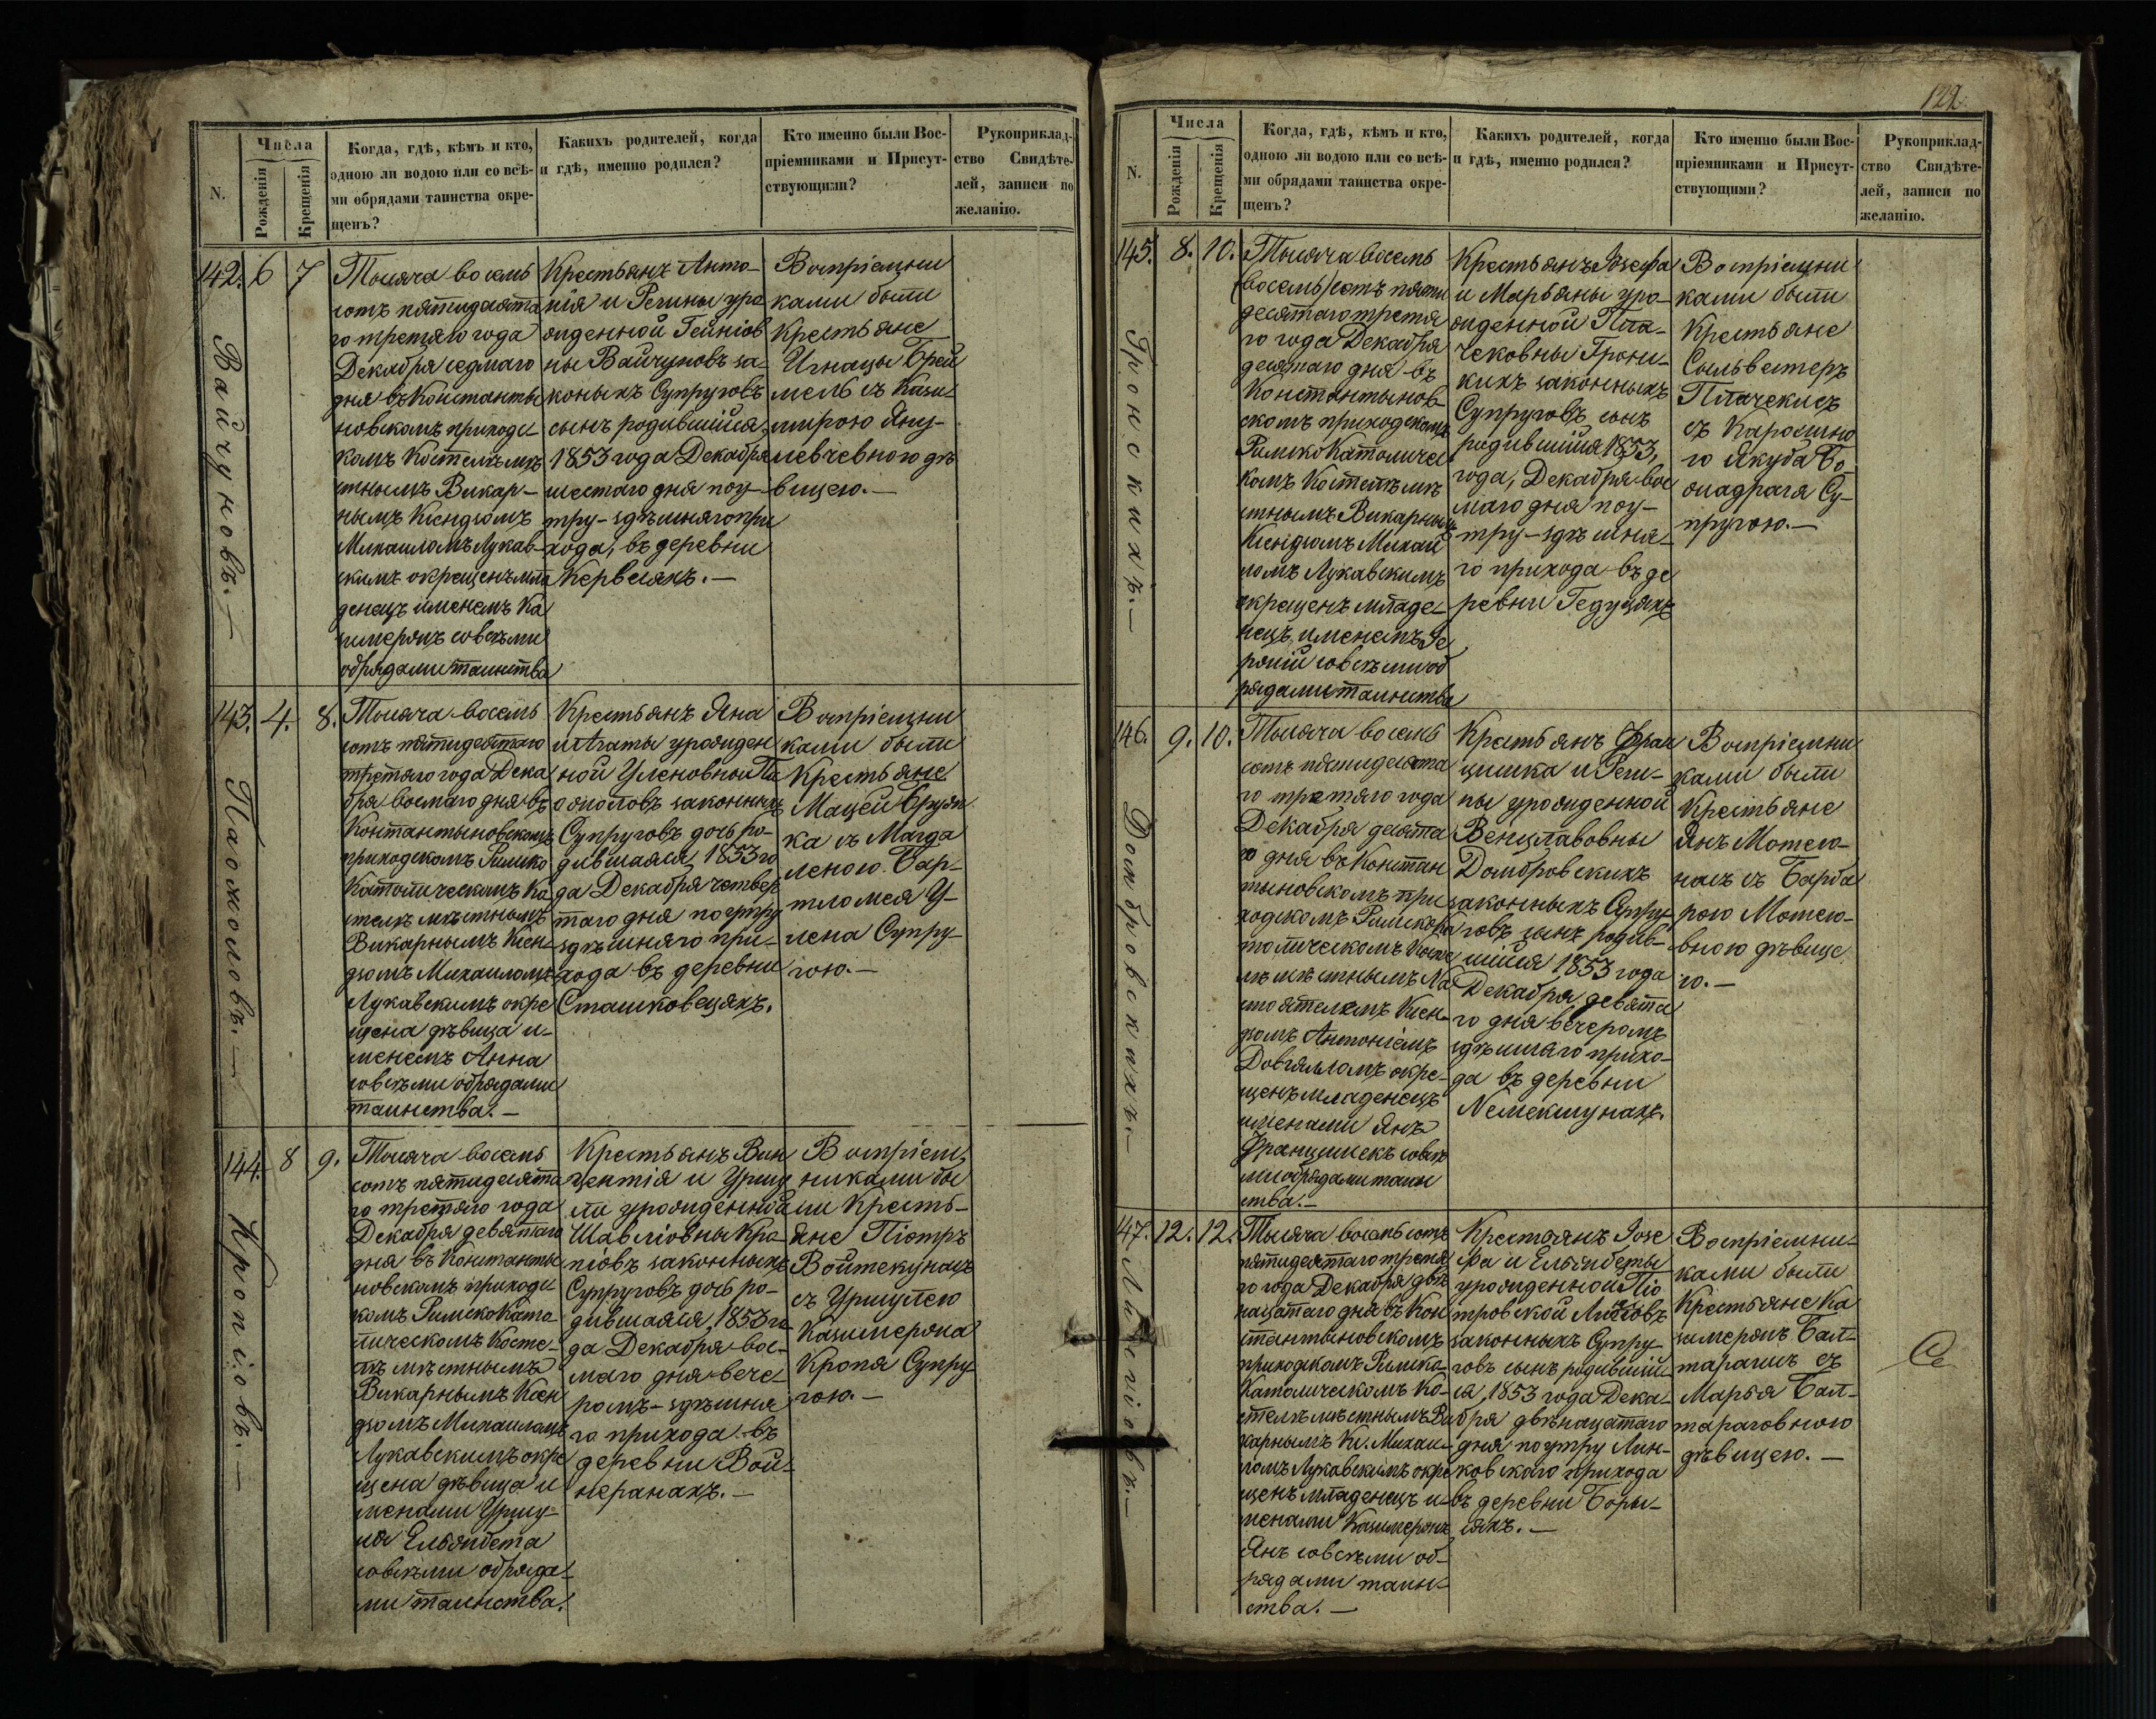 N.
Числа
Рожденія
Крещенія
Когда, гдѣ, кѣмъ и кто,
одною ли водою или со всѣ-
ми обрядами таинства окре-
щенъ?
Какихъ родителей, когда
и гдѣ, именно родился?
Кто именно были Вос-
пріемниками и Присут-
ствующими?
Рукоприклад-
ство Свидѣте-
лей, записи по
желанію.
142. 6 7
Вайчуновъ.—
Тысяча восемь
сотъ пятидесята
го третяго года
Декабря седмаго
дня въ Константы
новскомъ приходс
комъ Костелѣ мѣ
стнымъ Викар-
нымъ Ксендзомъ
Михаиломъ Лукав-
скимъ окрещенъ мла
денецъ именемъ Ка
зимержъ совсѣми
обрядами таинства
Крестьянъ Анто-
нія и Регины уро
жденной
ны Вайчуновъ за-
конныхъ Супруговъ
сынъ родившійся
1853 года Декабря
шестаго дня поу-
тру - здѣшняго при
хода, въ деревни
Кервсяхъ.—
Воспріемни
ками были
Крестьяне
Игнацы
съ Кази
мирою Яну-
левчевною дѣ
вицею.—
143. 4. 8.
Пажоловъ.—
Тысяча восемь
сотъ пятидесятаго
третяго года Дека
бря восмаго дня въ
Константыновскомъ
приходскомъ Римско
Католическомъ Ко
стелѣ мѣстнымъ
Викарнымъ Ксен-
дзомъ Михаиломъ
Лукавскимъ окре
щена дѣвица и-
менемъ Анна
совсѣми обрядами
таинства.—
Крестьянъ Яна
и Агаты урожден
ной Уленовной Па
жоловъ законныхъ
Супруговъ дочь ро-
дившаяся, 1853 го
да Декабря четвер
таго дня поутру
здѣшняго при-
хода въ деревни
Сташковцяхъ.
Воспріемни
ками были
Крестьяне
Мацей
ка съ Магда
леною Бар-
тломея У-
лена Супру-
гою.—
144. 8 9.
Кропіовъ.—
Тысяча восемь
сотъ пятидесята
го третяго года
Декабря девятаго
дня въ Константы
новскомъ приходс
комъ Римско Като
лическомъ Косте-
лѣ мѣстнымъ
Викарнымъ Ксен
дзомъ Михаиломъ
Лукавскимъ окре
щена дѣвица и
менами Уршу-
ля Ельжбета
совсѣми обряда-
ми таинства.
Крестьянъ Вин
центія и Уршу
ли урожденной
Шавліовны Кро
піовъ законныхъ
Супруговъ дочь ро-
дившаяся, 1853 го
да Декабря вос-
маго дня вече-
ромъ - здѣшня
го прихода въ
деревни Вой-
неранахъ.—
Воспріем
никами бы
ли Кресть-
яне Піотръ
Войтекунасъ
съ Уршулею
Казимержа
Кропя Супру-
гою.—
122.
N.
Числа
Рожденія
Крещенія
Когда, гдѣ, кѣмъ и кто,
одною ли водою или со всѣ-
ми обрядами таинства окре-
щенъ?
Какихъ родителей, когда
и гдѣ, именно родился?
Кто именно были Вос-
пріемниками и Присут-
ствующими?
Рукоприклад-
ство Свидѣте-
лей, записи по
желанію.
145. 8. 10.
Гронскихъ.—
Тысяча восемь
(восемь) сотъ пяти
десятаго третя
го года Декабря
десятаго дня въ
Константынов-
скомъ приходскомъ
Римско Католичес
комъ Костелѣ мѣ
стнымъ Викарнымъ
Ксендзомъ Михаи
ломъ Лукавскимъ
окрещенъ младе-
нецъ, именемъ
совсѣми об
рядами таинства
Крестьянъ Іозефа
и Марьяны уро-
жденной Пла-
чековны Гронс-
кихъ законныхъ
Супруговъ сынъ
родившійся 1853,
года, Декабря вос
маго дня поу-
тру - здѣшня-
го прихода въ де
ревни Гедуцяхъ
Воспріемни
ками были
Крестьяне
Сильвестеръ
Плачекисъ
съ Каролиню
го Якуба
Су-
пругою.—
146. 9. 10.
Домбровскихъ.—
Тысяча восемь
сотъ пятидесята
го третяго года
Декабря десята
го дня въ Констан
тыновскомъ при
ходскомъ Римско Ка
толическомъ Косте
лѣ мѣстнымъ На
стоятелемъ Ксен-
дзомъ Антоніемъ
Довгялломъ окре-
щенъ младенецъ
именами Янъ
Францишекъ совсѣ
ми обрядами таин
ства.—
Крестьянъ Фран
цишка и Реги-
ны урожденной
Венцлавовны
Домбровскихъ
законныхъ Супру
говъ сынъ родив-
шійся 1853 года
Декабря, девята
го дня вечеромъ
здѣшняго прихо-
да въ деревни
Немекшунахъ.
Воспріемни
ками были
Крестьяне
Янъ Мотею-
насъ съ Барба
рою Мотею-
вною дѣвице
ю.—
147. 12. 12.
Тысяча восемь сотъ
пятидесятаго третя
го года Декабря двѣ
надцатаго дня въ Кон
стантыновскомъ
приходскомъ Римско-
Католическомъ Ко-
стелѣ мѣстнымъ Ви
карнымъ Кс. Михаи-
ломъ Лукавскимъ окре
щенъ младенецъ и-
менами Казимержъ
Янъ совсѣми об-
рядами таин-
ства.—
Крестьянъ Іозе
фа и Ельжбеты
урожденной Піо
тровской
законныхъ Супру-
говъ сынъ родившій-
ся, 1853 года Дека-
бря двѣнацатаго
дня поутру Лын-
ковскаго прихода
въ деревни Боры-
сяхъ.—
Воспріемни-
ками были
Крестьяне Ка
зимержъ Бал-
тарагисъ съ
Марья Бал-
тараговною
дѣвицею.—